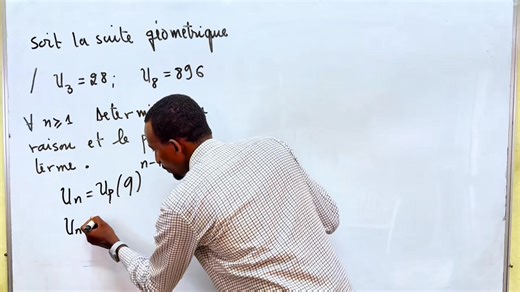 Soit la suite géométrique
/ U₃ = 28 ; U₈ = 896
∀ n≥1
raison et le
terme.
Uₙ = Uₚ(q)
Uₙ